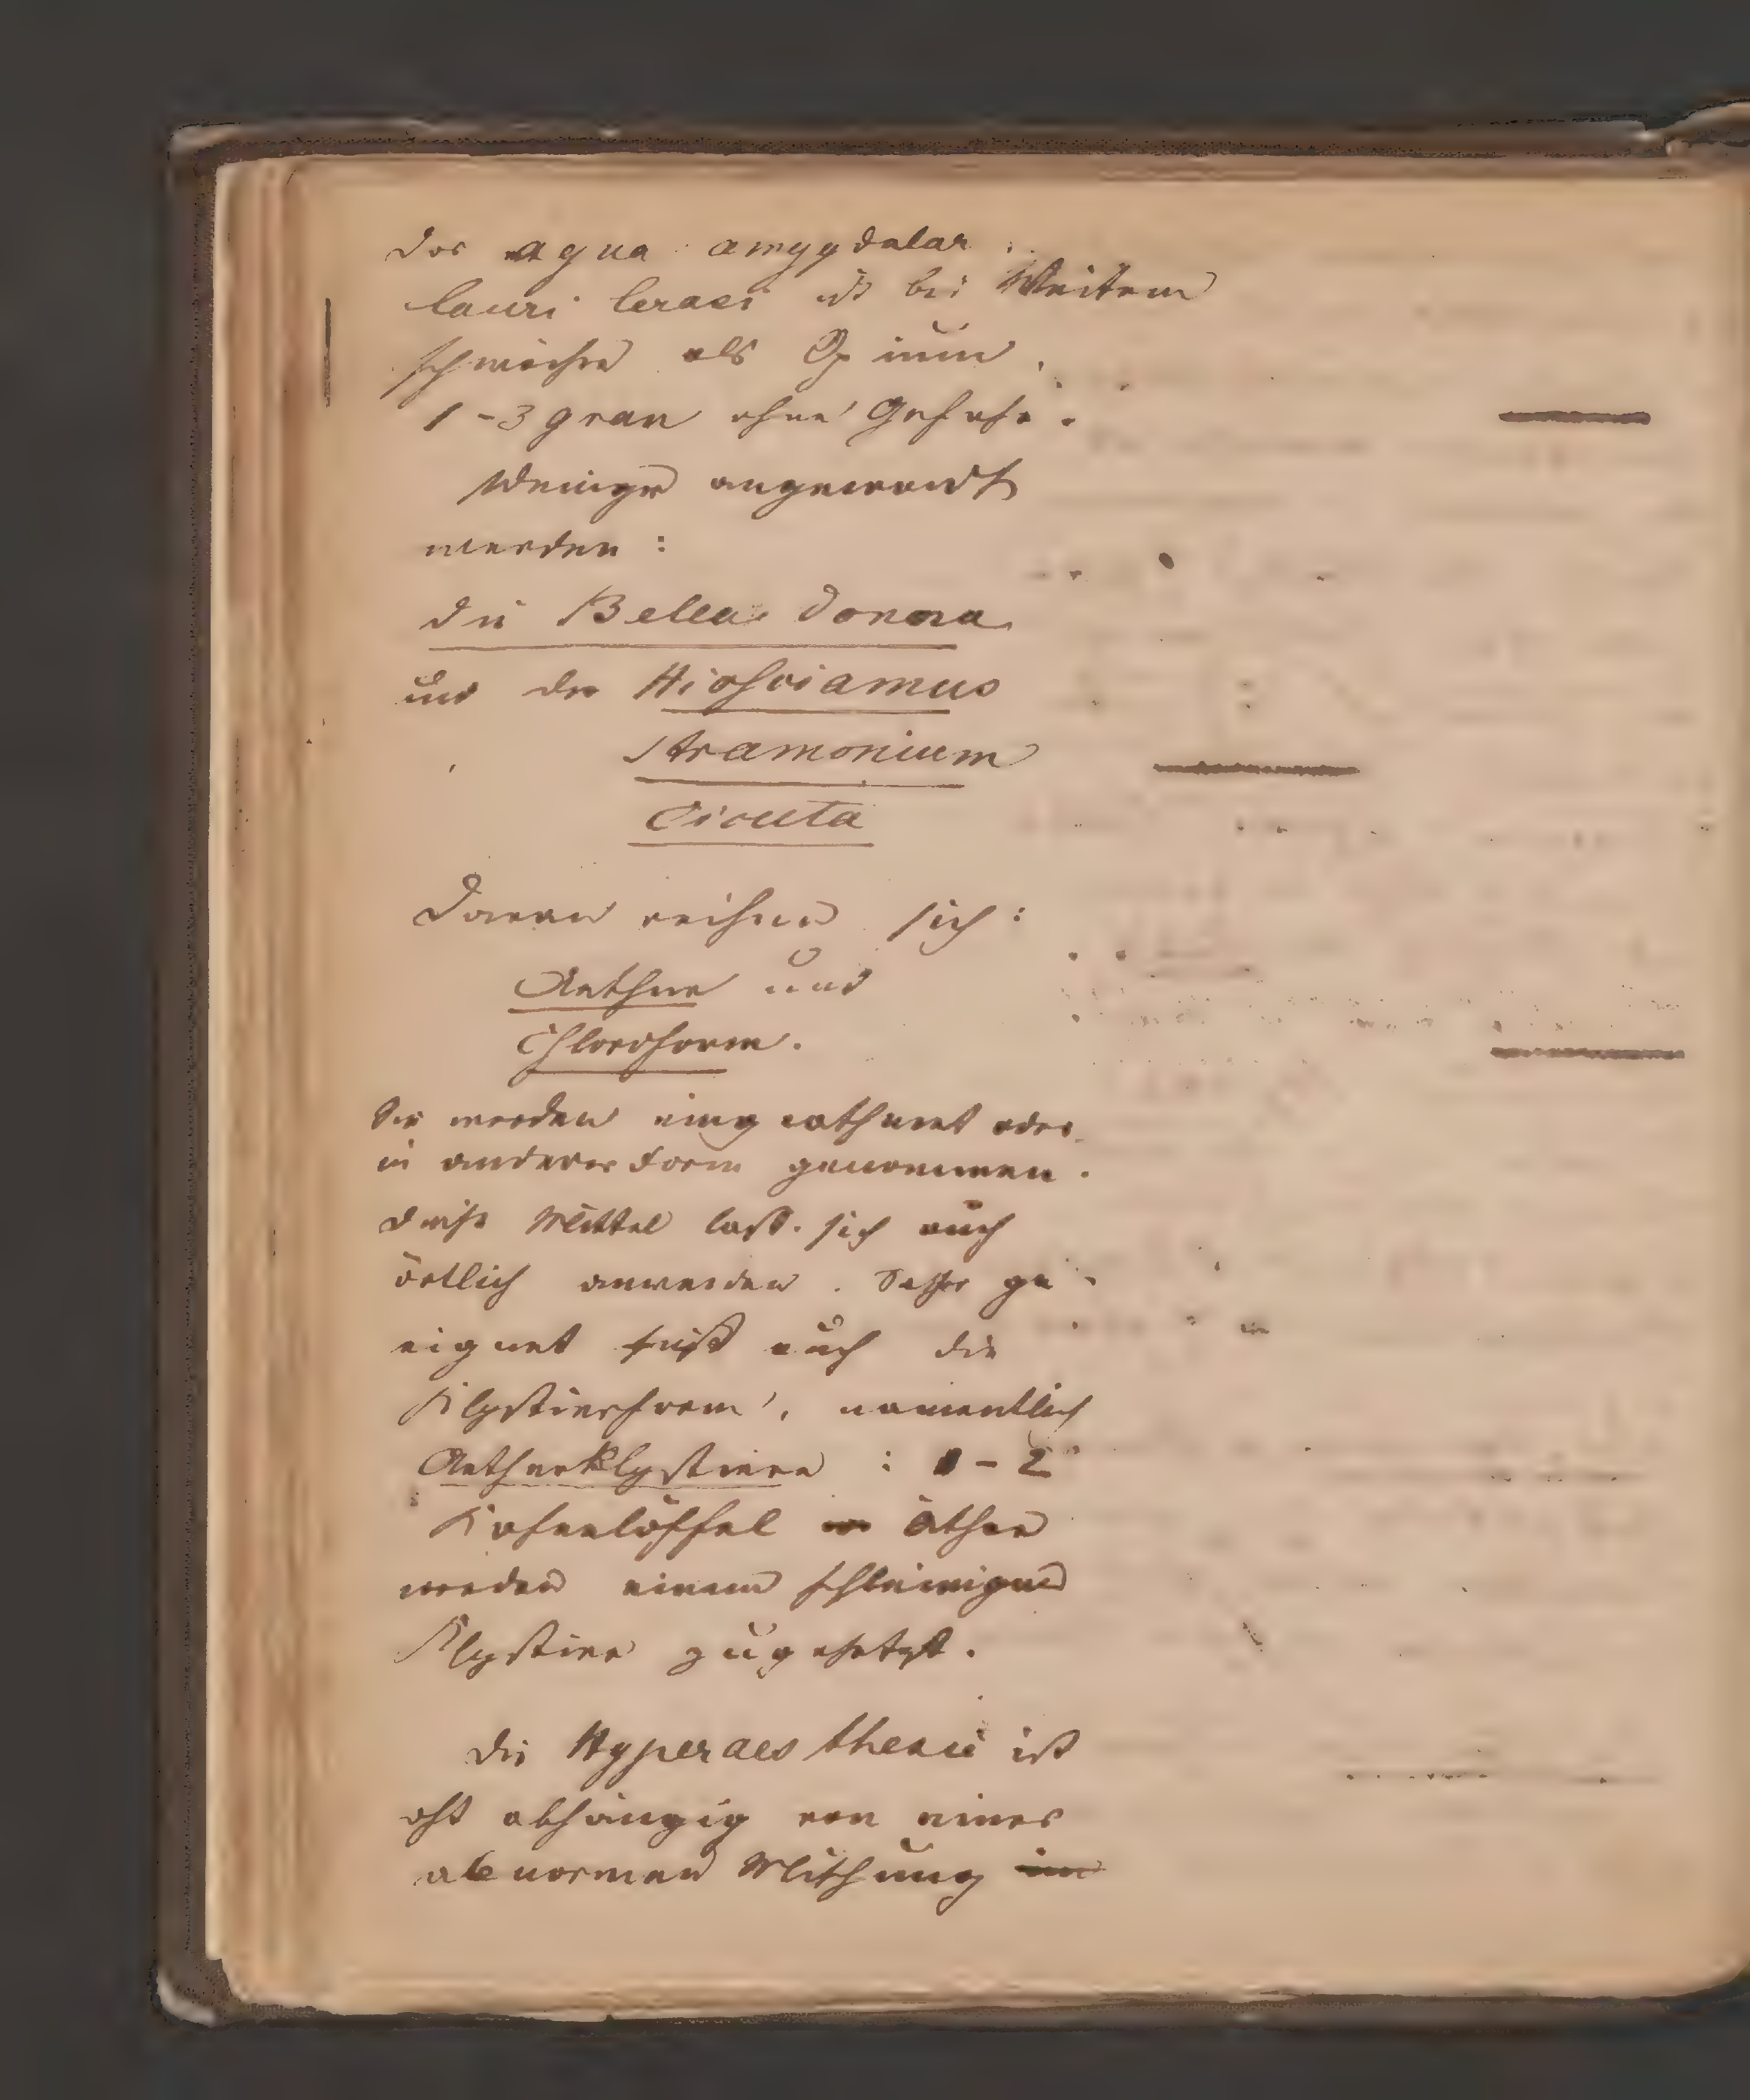 Das aqua amygdalar.
lauri ceras. ist bei Weitem
schwächer als Opium.
1-3 gran ohne Gefahr.
Weniger angewendet
werden:
die Bella donna
und der Hiosciamus
Stramonium
Cicuta
Daran reihen sich:
Aether und
Chloroform.
Sie werden eingeathmet oder
in anderer Form genommen.
Diese Mittel lass. sich auch
örtlich anwenden. Sehr ge-
eignet ist auch die
Klystierform, namentlich
Aetherklystiere: 1-2
Kaffeelöffel Äther
werden einem schleimigen
Klystier zugesetzt.
Die Hyperaesthesie ist
oft abhängig von einer
abnormen Mischung